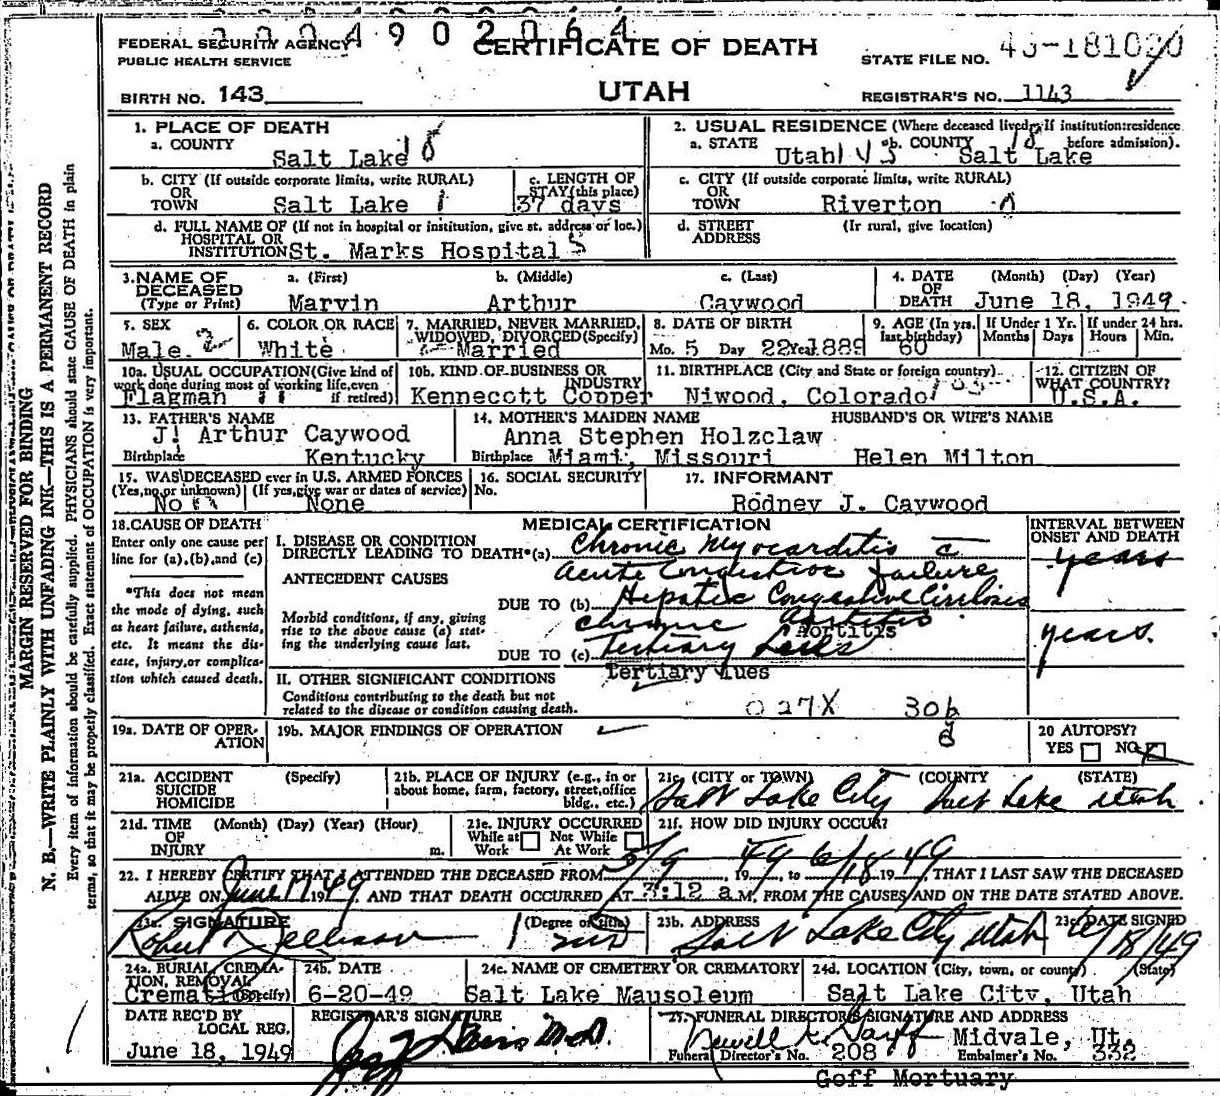 0 0 4 9 0 2 0 6 4
FEDERAL SECURITY AGENCY
PUBLIC HEALTH SERVICE
CERTIFICATE OF DEATH
STATE FILE NO.
BIRTH NO. 143
UTAH
REGISTRAR'S NO. 1143
MARGIN RESERVED FOR BINDING
N. B.—WRITE PLAINLY WITH UNFADING INK—THIS IS A PERMANENT RECORD
Every item of information should be carefully supplied. PHYSICIANS should state CAUSE OF DEATH in plain
terms, so that it may be properly classified. Exact statement of OCCUPATION is very important.
1. PLACE OF DEATH
a. COUNTY
Salt Lake 18
2. USUAL RESIDENCE (Where deceased lived. If institution: residence
before admission).
a. STATE Utah b. COUNTY Salt Lake 18
b. CITY (If outside corporate limits, write RURAL)
OR
TOWN Salt Lake 1
c. LENGTH OF
STAY (this place)
37 days
c. CITY (If outside corporate limits, write RURAL)
OR
TOWN Riverton
d. FULL NAME OF (If not in hospital or institution, give st. address or loc.)
HOSPITAL OR
INSTITUTION St. Marks Hospital 5
d. STREET (If rural, give location)
ADDRESS
3. NAME OF
DECEASED
(Type or Print)
a. (First) b. (Middle) c. (Last)
Marvin Arthur Caywood
4. DATE (Month) (Day) (Year)
OF
DEATH June 18, 1949
5. SEX
Male
6. COLOR OR RACE
White
7. MARRIED, NEVER MARRIED,
WIDOWED, DIVORCED (Specify)
Married
8. DATE OF BIRTH
Mo. 5 Day 22 Year 1889
9. AGE (In yrs. last birthday)
60
If Under 1 Yr.
Months Days
If under 24 hrs.
Hours Min.
10a. USUAL OCCUPATION (Give kind of
work done during most of working life, even
if retired)
Flagman
10b. KIND OF BUSINESS OR
INDUSTRY
Kennecott Copper
11. BIRTHPLACE (City and State or foreign country)
Niwood, Colorado
12. CITIZEN OF
WHAT COUNTRY?
U.S.A.
13. FATHER'S NAME
J. Arthur Caywood
Birthplace Kentucky
14. MOTHER'S MAIDEN NAME
Anna Stephen Holzclaw
Birthplace Miami, Missouri
HUSBAND'S OR WIFE'S NAME
Helen Milton
15. WAS DECEASED ever in U.S. ARMED FORCES
(Yes, no, or unknown) (If yes, give war or dates of service)
No None
16. SOCIAL SECURITY
No.
17. INFORMANT
Rodney J. Caywood
18. CAUSE OF DEATH
Enter only one cause per
line for (a), (b), and (c)
*This does not mean
the mode of dying, such
as heart failure, asthenia,
etc. It means the dis-
ease, injury, or complica-
tion which caused death.
MEDICAL CERTIFICATION
INTERVAL BETWEEN
ONSET AND DEATH
I. DISEASE OR CONDITION
DIRECTLY LEADING TO DEATH*(a) Chronic Myocarditis c̄ years
Acute Congestive failure
ANTECEDENT CAUSES
DUE TO (b) Hepatic Congestive Cirrhosis
Morbid conditions, if any, giving
rise to the above cause (a) stat-
ing the underlying cause last.
chronic Aortitis years.
Aortitis
DUE TO (c) Tertiary Lues
Tertiary lues
II. OTHER SIGNIFICANT CONDITIONS
Conditions contributing to the death but not
related to the disease or condition causing death.
027X 30b
19a. DATE OF OPER-
ATION
19b. MAJOR FINDINGS OF OPERATION
20 AUTOPSY?
YES NO X
21a. ACCIDENT (Specify)
SUICIDE
HOMICIDE
21b. PLACE OF INJURY (e.g., in or
about home, farm, factory, street, office
bldg., etc.)
21c. (CITY or TOWN) (COUNTY (STATE)
Salt Lake City Salt Lake Utah
21d. TIME (Month) (Day) (Year) (Hour)
OF
INJURY m.
21e. INJURY OCCURRED
While at Work Not While At Work
21f. HOW DID INJURY OCCUR?
22. I HEREBY CERTIFY THAT I ATTENDED THE DECEASED FROM 5/9 1949, to 6/18 1949, THAT I LAST SAW THE DECEASED
ALIVE ON June 17 1949, AND THAT DEATH OCCURRED AT 3:12 a.M, FROM THE CAUSES AND ON THE DATE STATED ABOVE.
23a. SIGNATURE (Degree or title)
Robert
23b. ADDRESS
Salt Lake City Utah
23c. DATE SIGNED
6/18/49
24a. BURIAL, CREMA-
TION, REMOVAL
(Specify)
24b. DATE
6-20-49
24c. NAME OF CEMETERY OR CREMATORY
Salt Lake Mausoleum
24d. LOCATION (City, town, or county) (State)
Salt Lake City, Utah
DATE REC'D BY
LOCAL REG.
June 18, 1949
REGISTRAR'S SIGNATURE
25. FUNERAL DIRECTOR'S SIGNATURE AND ADDRESS
Midvale, Ut.
Funeral Director's No. 208 Embalmer's No. 332
Goff Mortuary